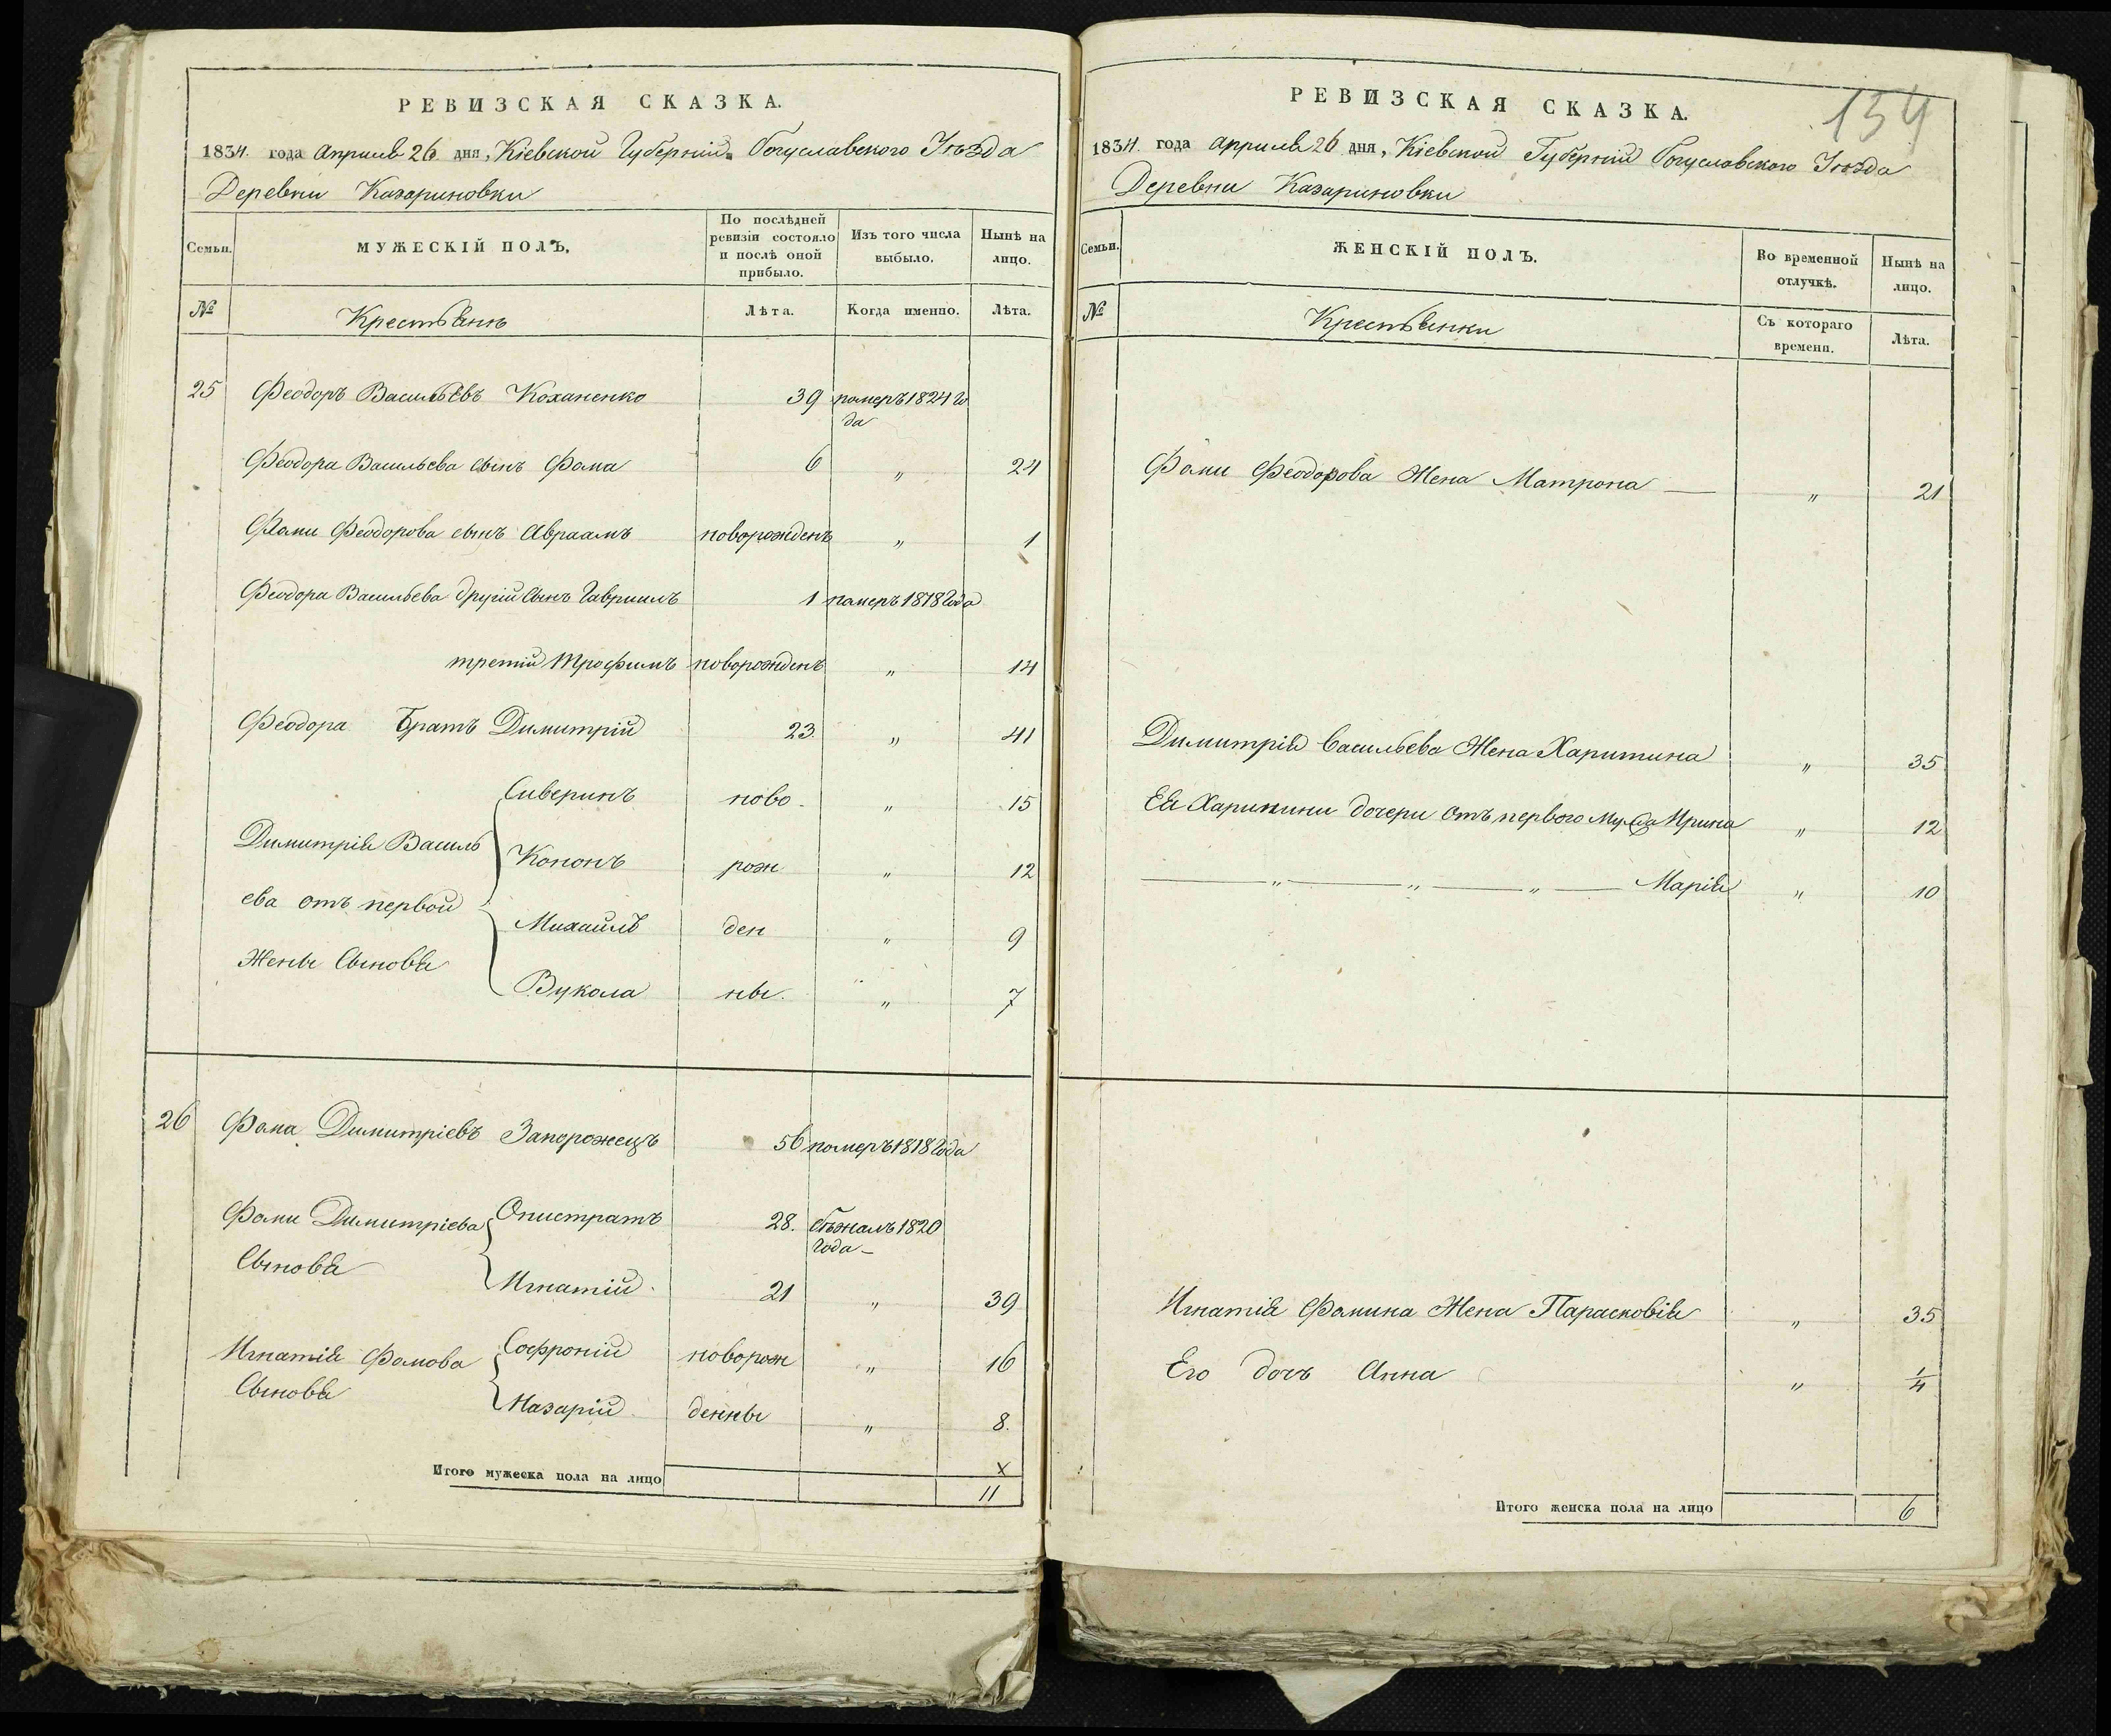 РЕВИЗСКАЯ СКАЗКА.
1834. года Апреля 26 дня, Кіевской Губерніи Богуславского Уѣзда
Деревни Казариновки
Семьи.
МУЖЕСКІЙ ПОЛЪ.
По послѣдней ревизіи состояло и послѣ оной прибыло.
Изъ того числа выбыло.
Нынѣ на лицо.
№
Крестьянъ
Лѣта.
Когда именно.
Лѣта.
25 Феодоръ Васильевъ Коханенко 39 померъ 1824 го
да
Феодора Васильева сынъ Фома 6 „ 24
Фомы Феодорова сынъ Авраамъ новорожденъ „ 1
Феодора Васильева другій сынъ Гавриилъ 1 померъ 1818 года
третій Трофимъ новорожденъ „ 14
Феодора Братъ Димитрій 23. „ 41
Сиверинъ ново- „ 15
Димитрія Василь
Кононъ рож „ 12
ева отъ первой
Михаилъ ден „ 9
Жены Сыновья
Вукола ны. „ 7
26 Фома Димитріевъ Запорожецъ 56 померъ 1818 года
Фомы Димитріева Онистратъ 28. бѣжалъ 1820
года-
Сыновья
Игнатій. 21 „ 39
Игнатія Фомова Софроній новорож „ 16
Сыновья Назарій. денны „ 8.
X
Итого мужеска пола на лицо 11
РЕВИЗСКАЯ СКАЗКА.
154
1834 года Апреля 26 дня, Кіевской Губерніи Богуславского Уѣзда
Деревни Казариновки
Семьи.
ЖЕНСКІЙ ПОЛЪ.
Во временной отлучкѣ.
Нынѣ на лицо.
№
Крестьянки
Съ котораго времени.
Лѣта.
Фомы Феодорова Жена Матрона — „ 21
Димитрія Васильева Жена Харитина „ 35
Ея Харитини дочери отъ первого мужа Ирина „ 12
— „ — „ — „ — Марія „ 10
Игнатія Фомина Жена Парасковія „ 35
Его дочь Анна „ 1/4
Итого женска пола на лицо 6